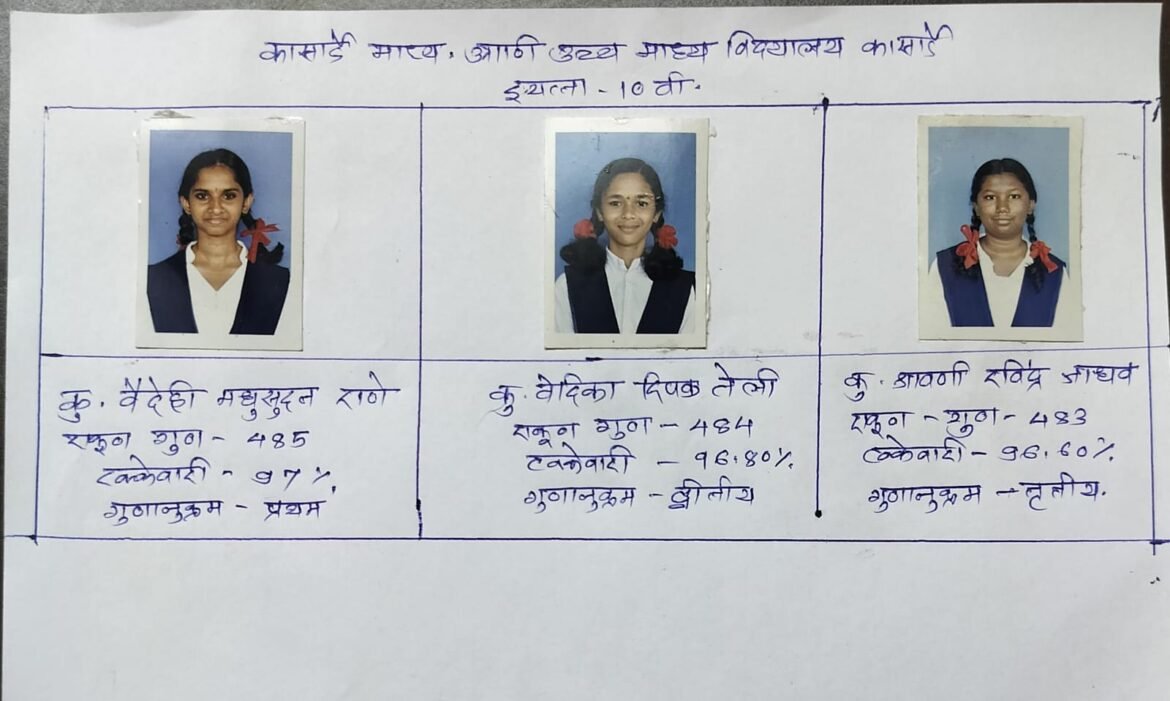 कासार्डे माध्य. आणि उच्च माध्य विद्यालय कासार्डे
इयत्ता - 10 वी.
कु. वैदेही मधुसुदन राणे
एकूण गुण - 485
टक्केवारी - 97%
गुणानुक्रम - प्रथम
कु. वेदिका दिपक तेली
एकूण गुण - 484
टक्केवारी - 96.80%
गुणानुक्रम - द्वीतीय
कु. श्रावणी रविंद्र जाधव
एकूण - गुण - 483
टक्केवारी - 96.60%
गुणानुक्रम - तृतीय.